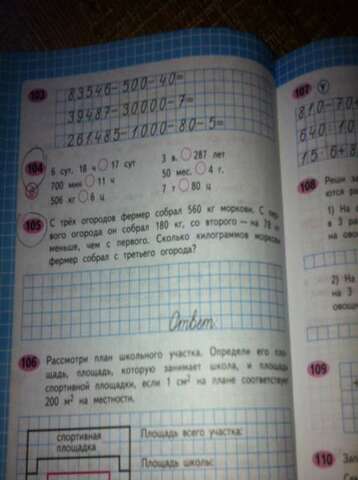 103
83546-500-40=
39487-30000-7=
261485-1000-80-5=
104
6 сут. 18 ч ○ 17 сут
3 в. ○ 287 лет
700 мин ○ 11 ч
50 мес. ○ 4 г.
506 кг ○ 6 ц
7 т ○ 80 ц
105
С трёх огородов фермер собрал 560 кг моркови. С пер-
вого огорода он собрал 180 кг, со второго — на 78 кг
меньше, чем с первого. Сколько килограммов моркови
фермер собрал с третьего огорода?
Ответ
106
Рассмотри план школьного участка. Определи его пло-
щадь, площадь, которую занимает школа, и площадь
спортивной площадки, если 1 см² на плане соответствует
200 м² на местности.
спортивная
площадка
Площадь всего участка:
Площадь школы:
107
810:70
640:10
15·6+8
108
Реши за
ются ре
1) На
в 3 а
на ово
2) На
на 3
овощ
109
110
Зап